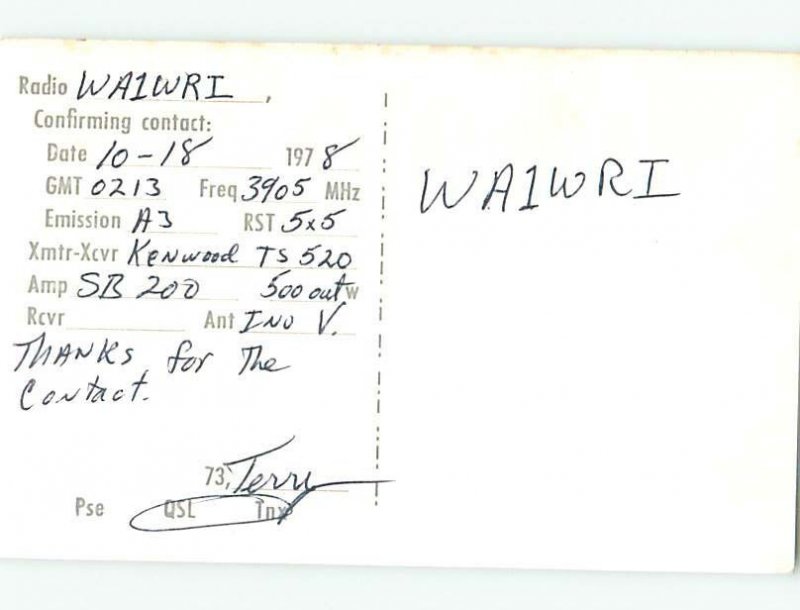 Radio WA1WRI,
Confirming contact:
Date 10-18 1978
GMT 0213 Freq 3905 MHz
Emission A3 RST 5x5
Xmtr-Xcvr Kenwood TS 520
Amp SB 200 500 out w
Rcvr Ant INV V.
THANKS for The
Contact.
73, Terry
Pse QSL Tnx
WA1WRI